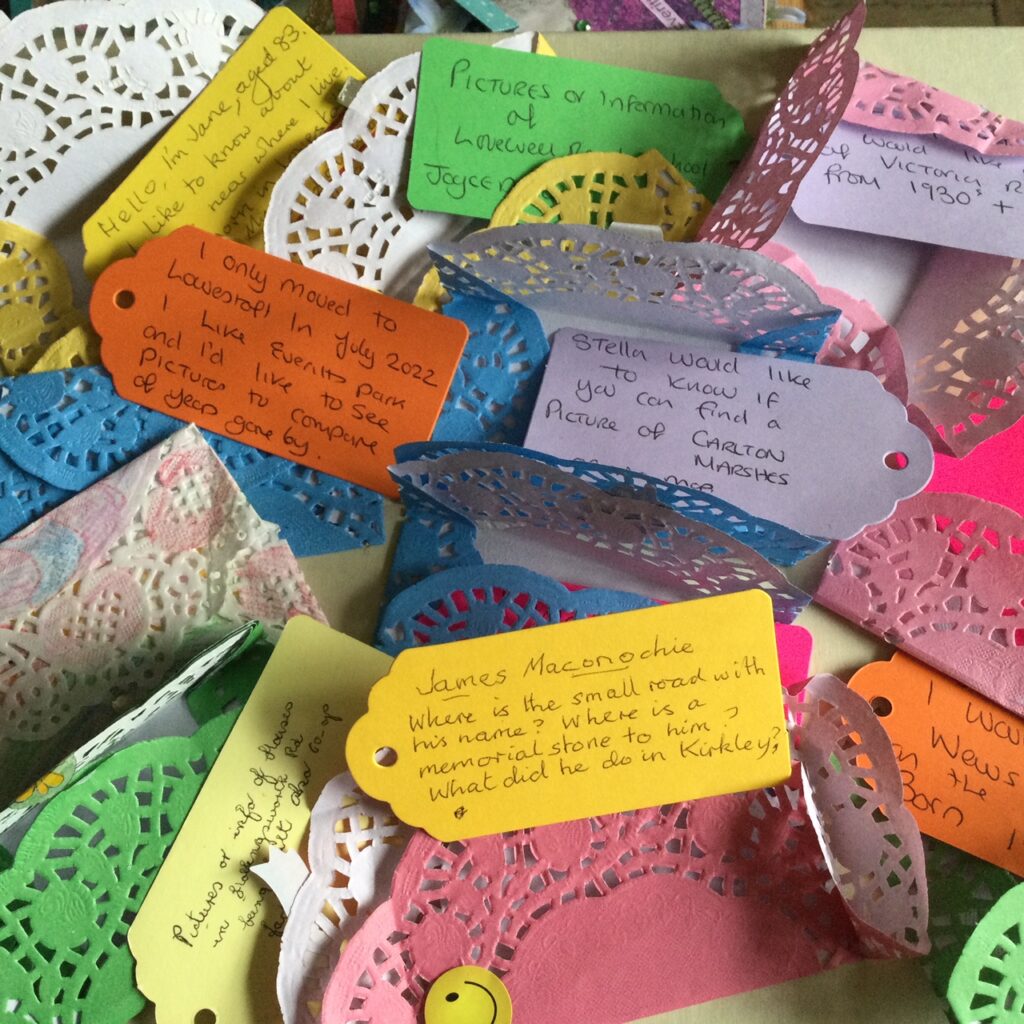 Hello, I'm Jane, aged 83.
I like to know about
near where I live
PICTURES or Information
of
Lovewell Road School
Joyce
Would like
of VICTORIA R
FROM 1930s +
I only moved to
Lowestoft In July 2022
I like Everitts park
and I'd like to see
Pictures to compare
of years gone by.
Stella would like
to know if
you can find a
PICTURE OF CARLTON
MARSHES
James Maconochie
Where is the small road with
his name? Where is a
memorial stone to him?
What did he do in Kirkley?
Pictures or info of Houses
in
I
News
the
Born
I